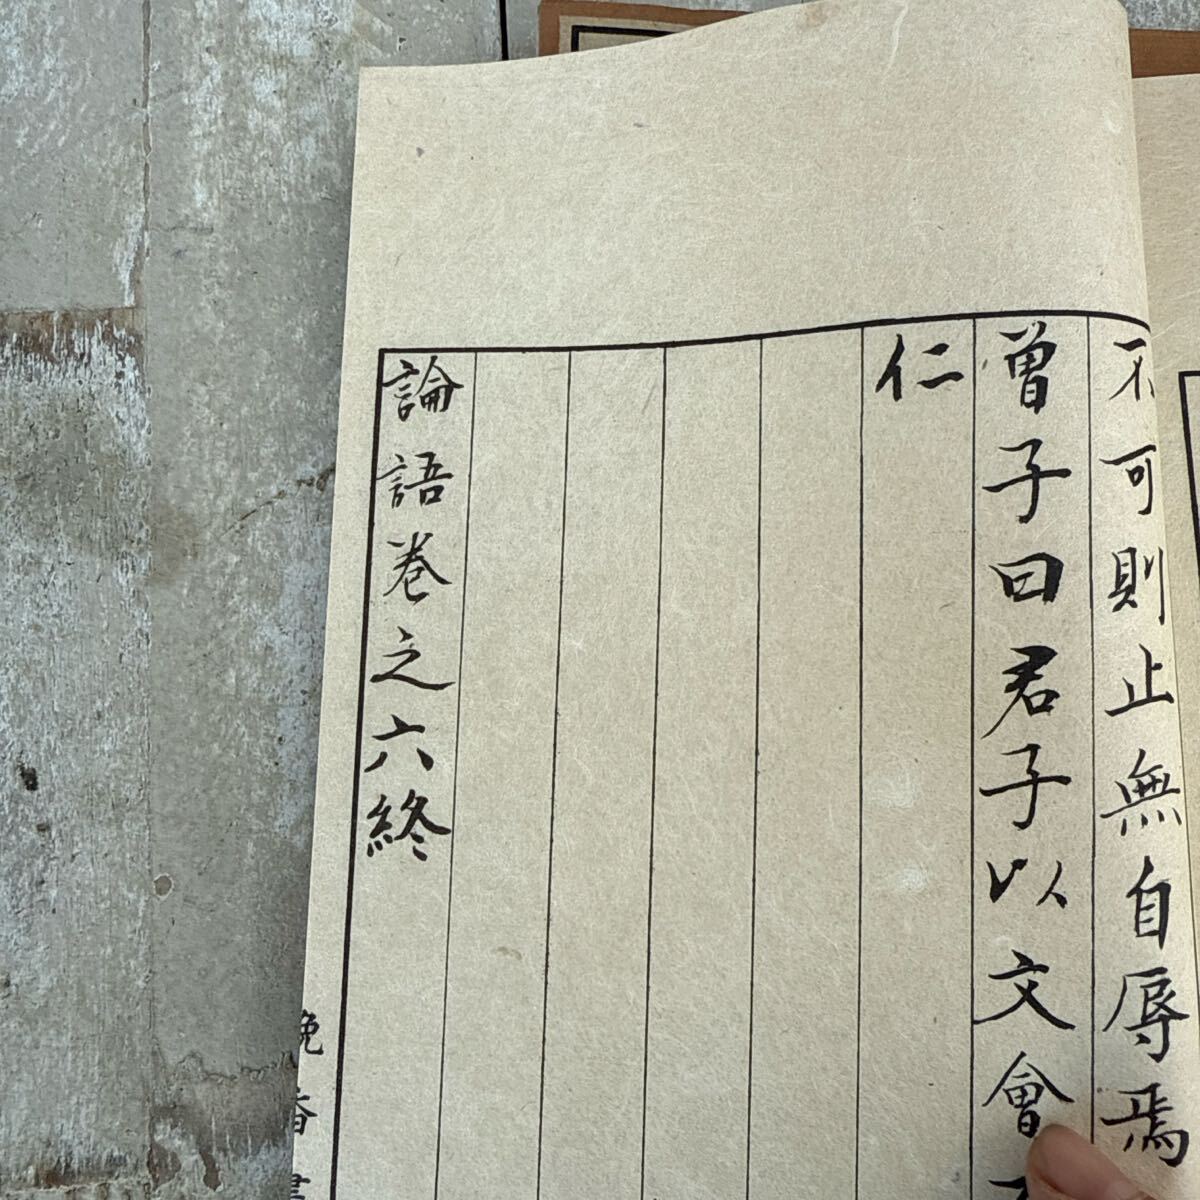 不可則止無自辱焉
曾子曰君子以文會
仁
論語卷之六終